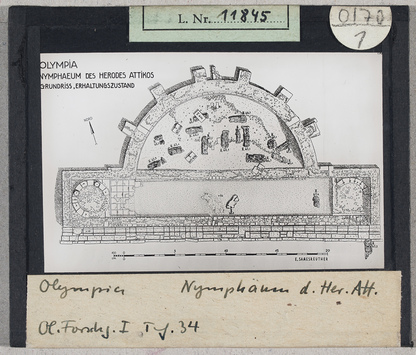 L. Nr. 11845
0170
1
OLYMPIA
NYMPHAEUM DES HERODES ATTIKOS
GRUNDRISS, ERHALTUNGSZUSTAND
Olympia Nymphäum d. Her. Att.
Ol. Forschg. I Taf. 34